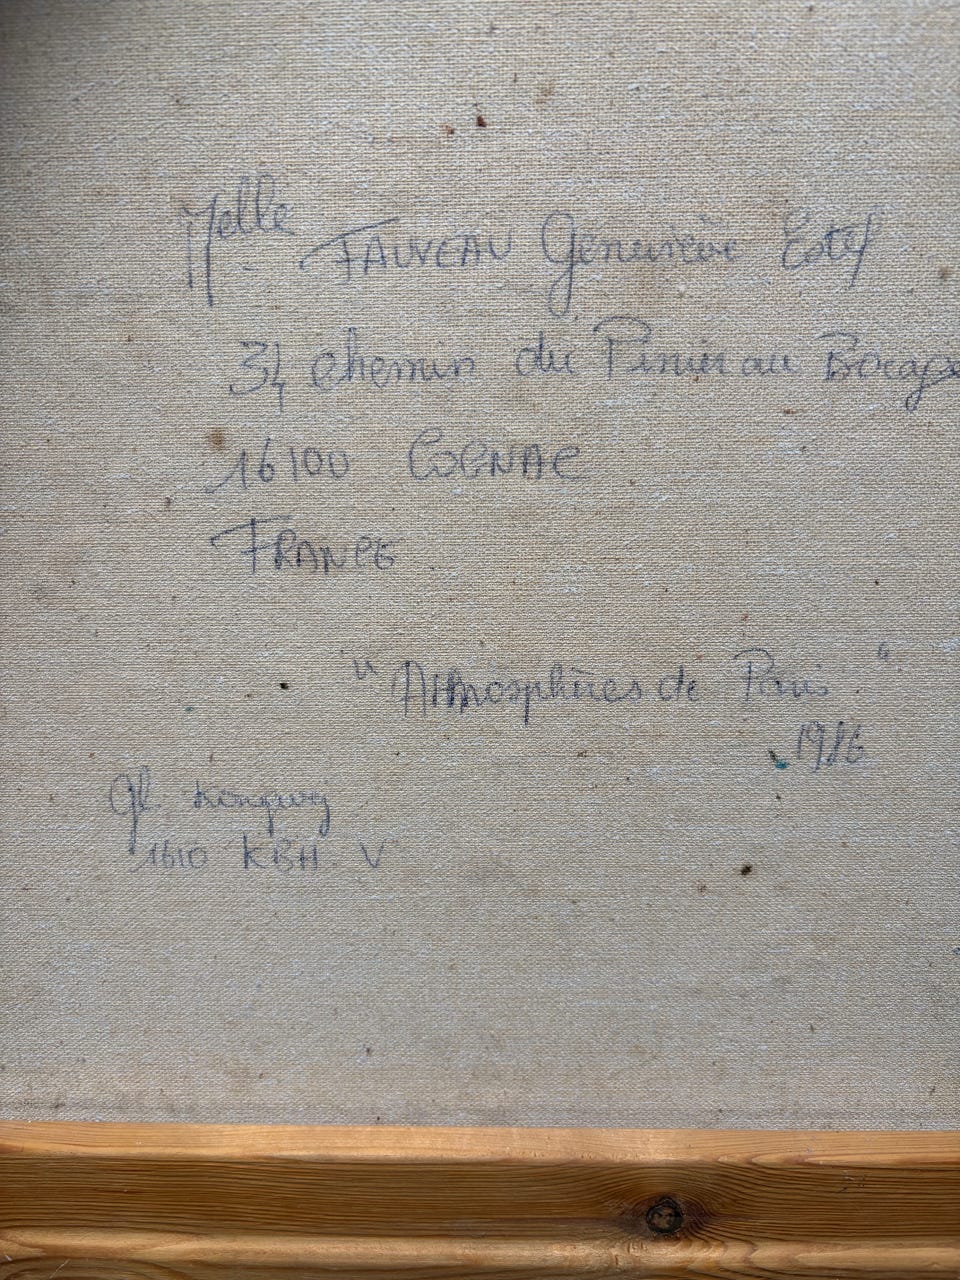 Melle FAUVEAU Geneviève Estel
34 chemin du Pinier au Bocage
16100 COGNAC
FRANCE
"Atmosphères de Paris"
1986
Gl. Kongevej
1610 KBH V